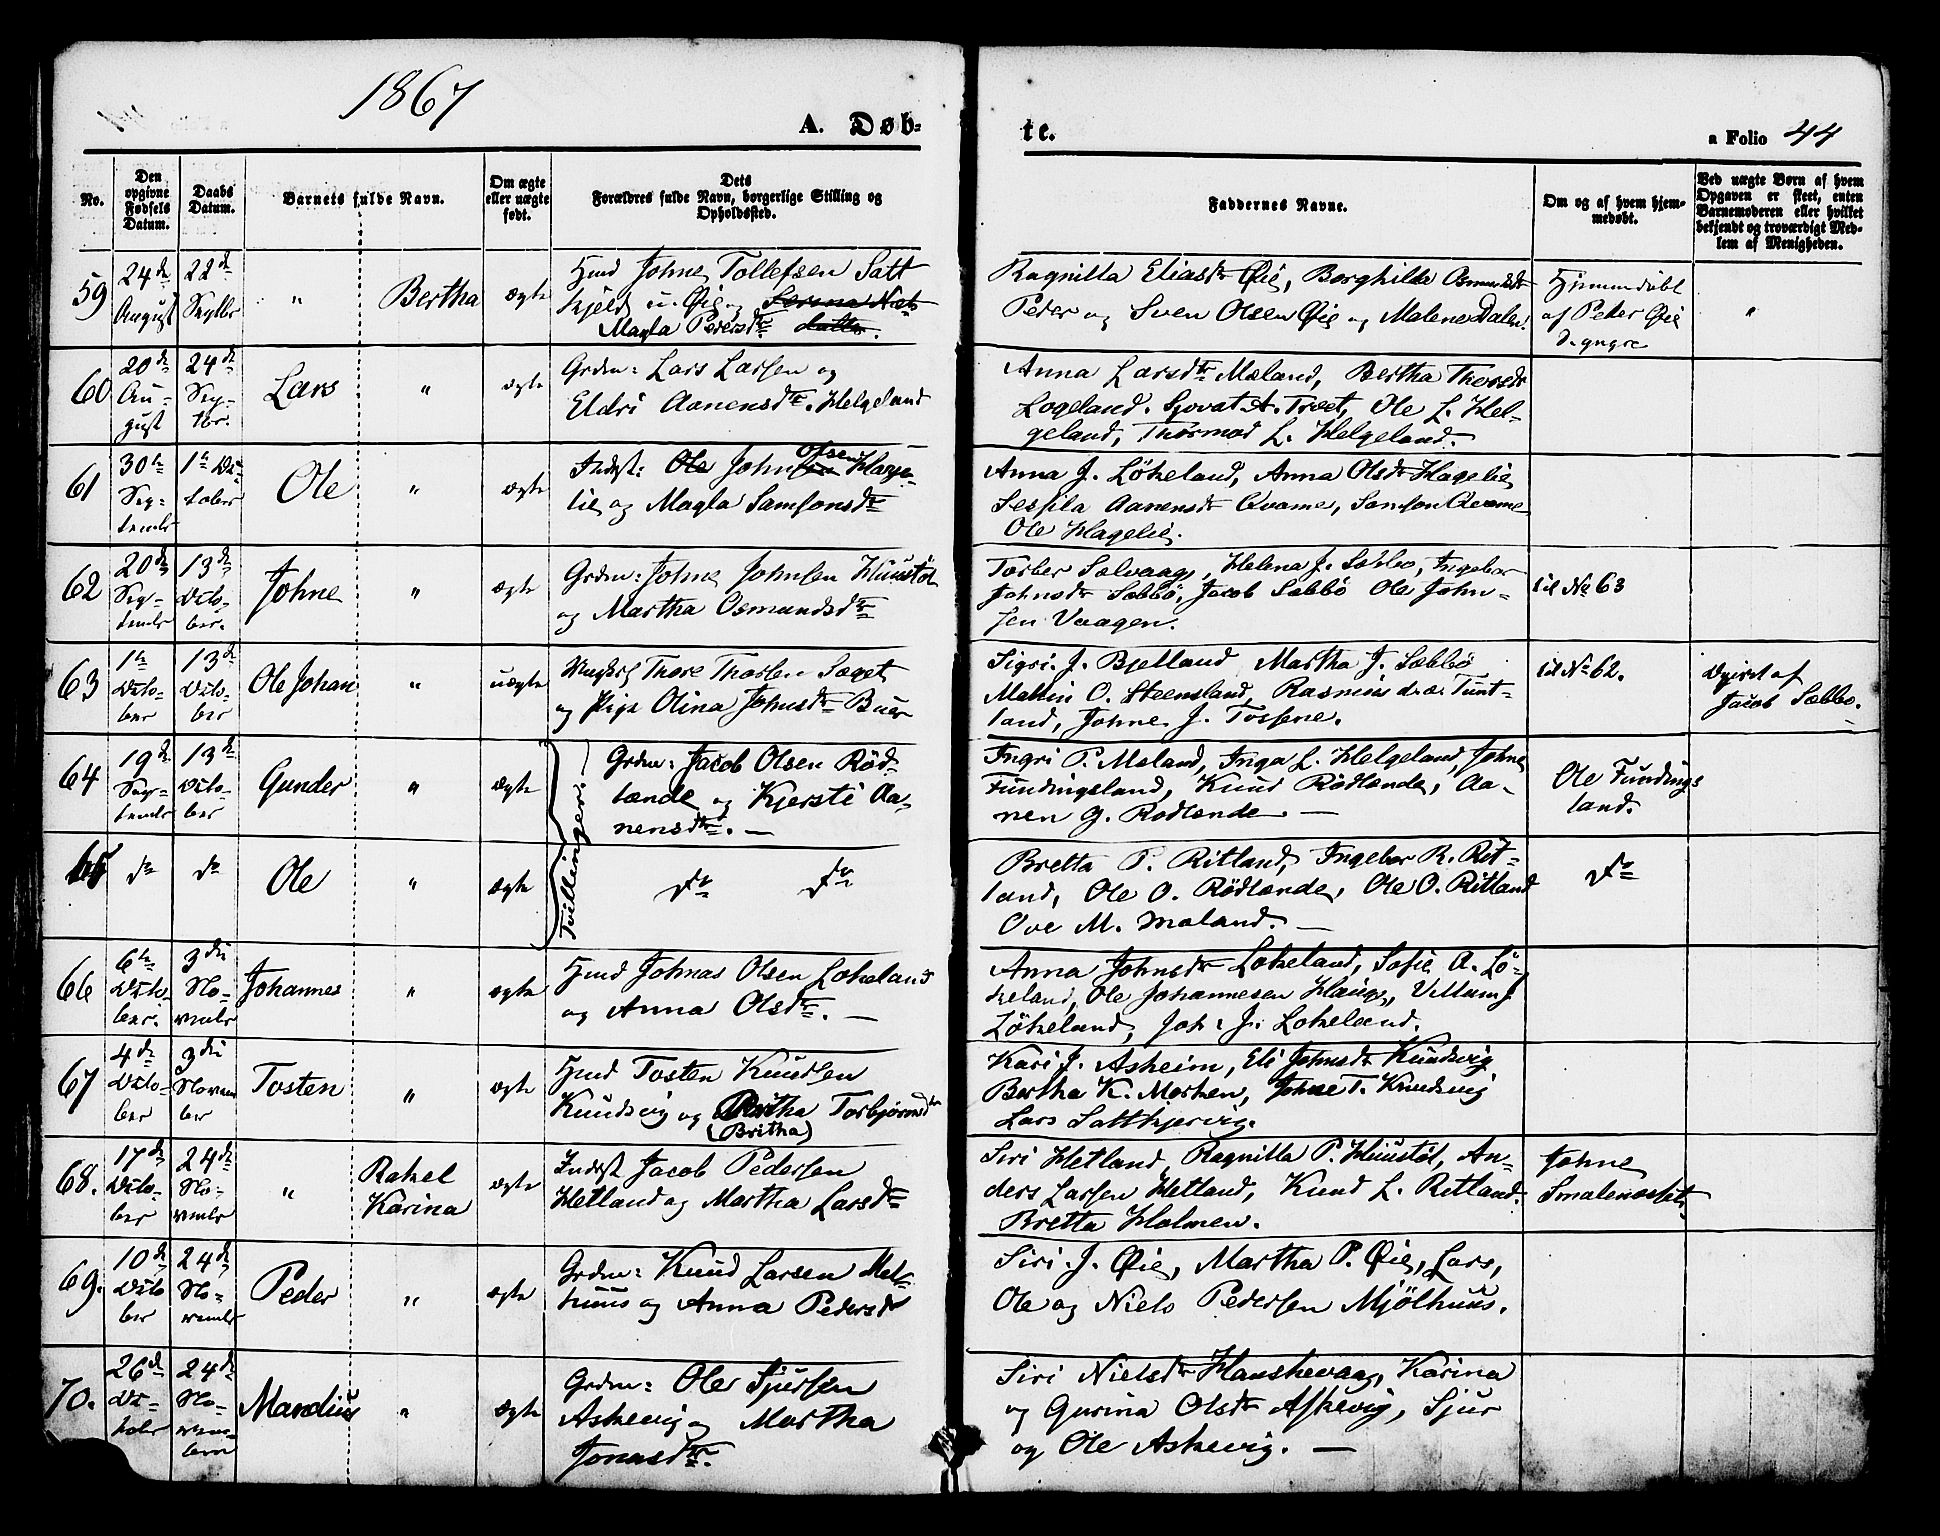 1867
A. Døb-
te.
a Folio 44
No.
Den
opgivne
Fødsels
Datum.
Daabs
Datum.
Barnets fulde Navn.
Om ægte
eller uægte
født.
Dets
Forældres fulde Navn, borgerlige Stilling og
Opholdssted.
Faddernes Navne.
Om og af hvem hjem-
medøbt.
Ved uægte Børn af hvem
Opgaven er skeet, enten
Barnemoderen eller hvilket
bekjendt og troværdigt Med-
lem af Menigheden.
59
24de
August
22de
Septbr
"
Bertha
ægte
Hmd Johne Tollefsen Satt
hjelg u. Øie og Serina Niels
Magla Pedersdtr datter.
Ragnilla Eliasdtr Øie, Borghilda Osmundsdtr
Peder og Sven Olsen Øie og Malene Dalen.
Hjemmedøbt
af Peder Øie
d. yngre
"
60
20de
Au-
gust
24de
Sep-
tbr.
Lars
"
ægte
Grdm: Lars Larsen og
Eldri Aanensdtr. Helgeland
Anna Larsdtr Mæland, Bertha Thorsdtr
Logeland. Sjovat A. Træet, Ole L. Hel-
geland, Thormod L. Helgeland.
61
30te
Sep-
tembr
1te Oc-
tober
Ole
"
ægte
Olsen
Inderst: Ole Johnsen Hage-
lie og Magla Samsonsdtr
Anna J. Lökeland, Anna Olsdtr Hagelie
Sessila Aanensdtr Qvame, Samson Qvame
Ole Hagelie.
62
20de
Sep-
tembr
13de
Octo-
ber.
Johne
"
ægte
Grdm: Johne Johnsen Huustol
og Martha Osmundsdtr
Torber Salvaag, Helena J. Sæbbø, Ingebor
Johnsdtr Sæbbö, Jacob Sæbbö Ole John-
sen Vaagen.
id No 63
63
1te
Octo-
ber
13de
Octo-
ber
Ole Johan
"
uægte
Ungkrl Thore Thorsen Saget
og Pige Olina Johnsdtr Buer
Sigri J. Bjelland Martha J. Sæbbö
Mallin O. Steensland, Rasmus Tunt-
land, Johne J. Tossene.
id No 62.
Opgivet af
Jacob Sæbbo.
64
19de
Sep-
tembr
13de
Octo-
ber
Gunder
"
ægte
Tvillinger
Grdm: Jacob Olsen Röd-
lænde og Kjersti Aa-
nensdtr. —
Ingri P. Mæland, Inga L. Helgeland, Johne
Fundingsland, Knud Rödlænde, Aa-
nen G. Rodlænde. —
Ole Fundings
land.
65
do
do
Ole
"
ægte
do do
Bretta P. Ritland, Ingebor R. Rit-
land, Ole O. Rödlænde, Ole O. Ritland
Ove M. Mæland. —
do
66
6te
Octo-
ber.
3die
No-
vembr
Johannes
"
ægte
Hmd Johnas Olsen Lokeland
og Anna Olsdtr. —
Anna Johnsdtr Lokeland, Sofie A. Lö-
keland, Ole Johannesen Hauge, Villum J.
Lökeland, Joh. J. Lokeland.
67
4de
Octo-
ber
3die
Novem
ber
Tosten
"
ægte
Hmd Tosten Knudsen
Knudsvig og Britha Torbjørnsdtr
(Britha)
Kari J. Asheim, Eli Johnsdtr Knudsvig
Bertha K. Morken, Johne T. Knudsvig
Lars Satthjervig.
68.
17de
Octo-
ber
24de
No-
vembr
"
Rakel
Karina
ægte
Inderst Jacob Pedersen
Hetland og Martha Larsdtr
Siri Hetland Ragnilla P. Huustol, An-
ders Larsen Hetland, Knud L. Ritland.
Bretta Holmen.
Johne
Smalenæsset.
69.
10de
Octo
ber
24de
No-
vembr
Peder
"
ægte
Grdm: Knud Larsen Mel-
huus og Anna Pedersdtr
Siri J. Øie, Martha P. Øie, Lars,
Ole og Niels Pedersen Mjölhuus.
70.
26de
Oc-
tober
24de
No-
vem-
bern
Mandius
"
ægte
Grdm: Ole Sjursen
Askevig og Martha
Jonasdtr.
Siri Nielsdtr Hanskevaag, Karina
og Gurina Olsdtr Askevig, Sjur
og Ole Askevig. —